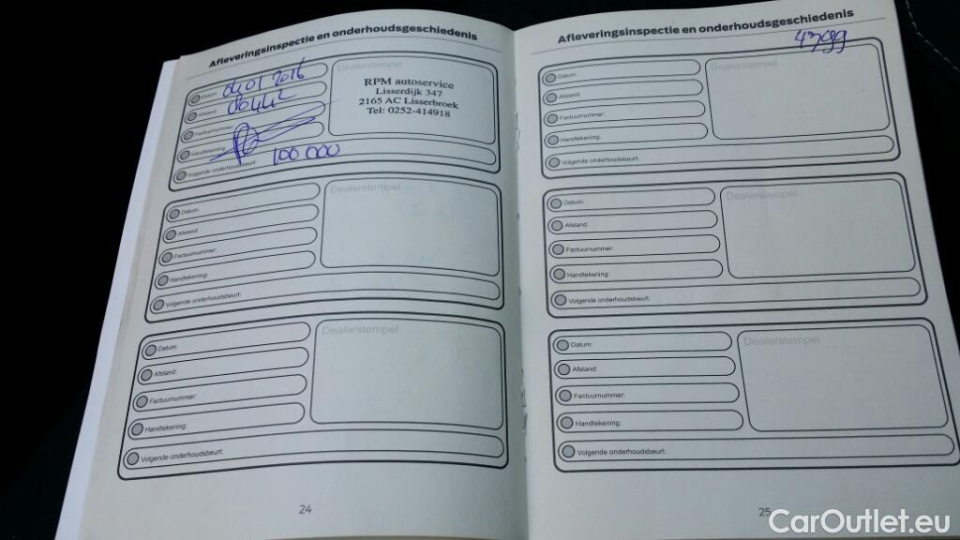 Afleveringsinspectie en onderhoudsgeschiedenis
Datum: 04 01 2016
Afstand:
Factuurnummer:
Handtekening:
Volgende onderhoudsbeurt: 100 000
Dealerstempel
RPM autoservice
Lisserdijk 347
2165 AC Lisserbroek
Tel: 0252-414918
Datum:
Afstand:
Factuurnummer:
Handtekening:
Volgende onderhoudsbeurt:
Dealerstempel
Datum:
Afstand:
Factuurnummer:
Handtekening:
Volgende onderhoudsbeurt:
Dealerstempel
24
Afleveringsinspectie en onderhoudsgeschiedenis
Datum:
Afstand:
Factuurnummer:
Handtekening:
Volgende onderhoudsbeurt:
Dealerstempel
Datum:
Afstand:
Factuurnummer:
Handtekening:
Volgende onderhoudsbeurt:
Dealerstempel
Datum:
Afstand:
Factuurnummer:
Handtekening:
Volgende onderhoudsbeurt:
Dealerstempel
25
CarOutlet.eu